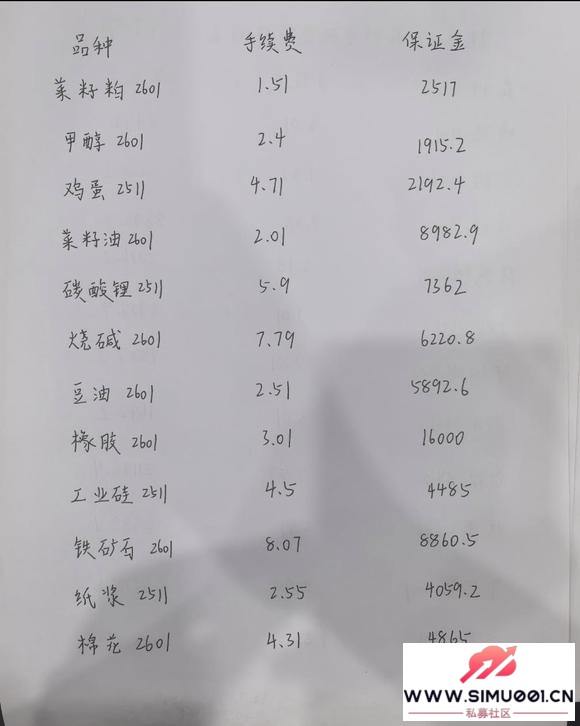 品种 手续费 保证金
菜籽粕 2601 1.51 2517
甲醇 2601 2.4 1915.2
鸡蛋 2511 4.71 2192.4
菜籽油 2601 2.01 8982.9
碳酸锂 2511 5.9 7362
烧碱 2601 7.79 6220.8
豆油 2601 2.51 5892.6
橡胶 2601 3.01 16000
工业硅 2511 4.5 4485
铁矿石 2601 8.07 8860.5
纸浆 2511 2.55 4059.2
棉花 2601 4.31 4865
WWW.SIMU001.CN
私募社区